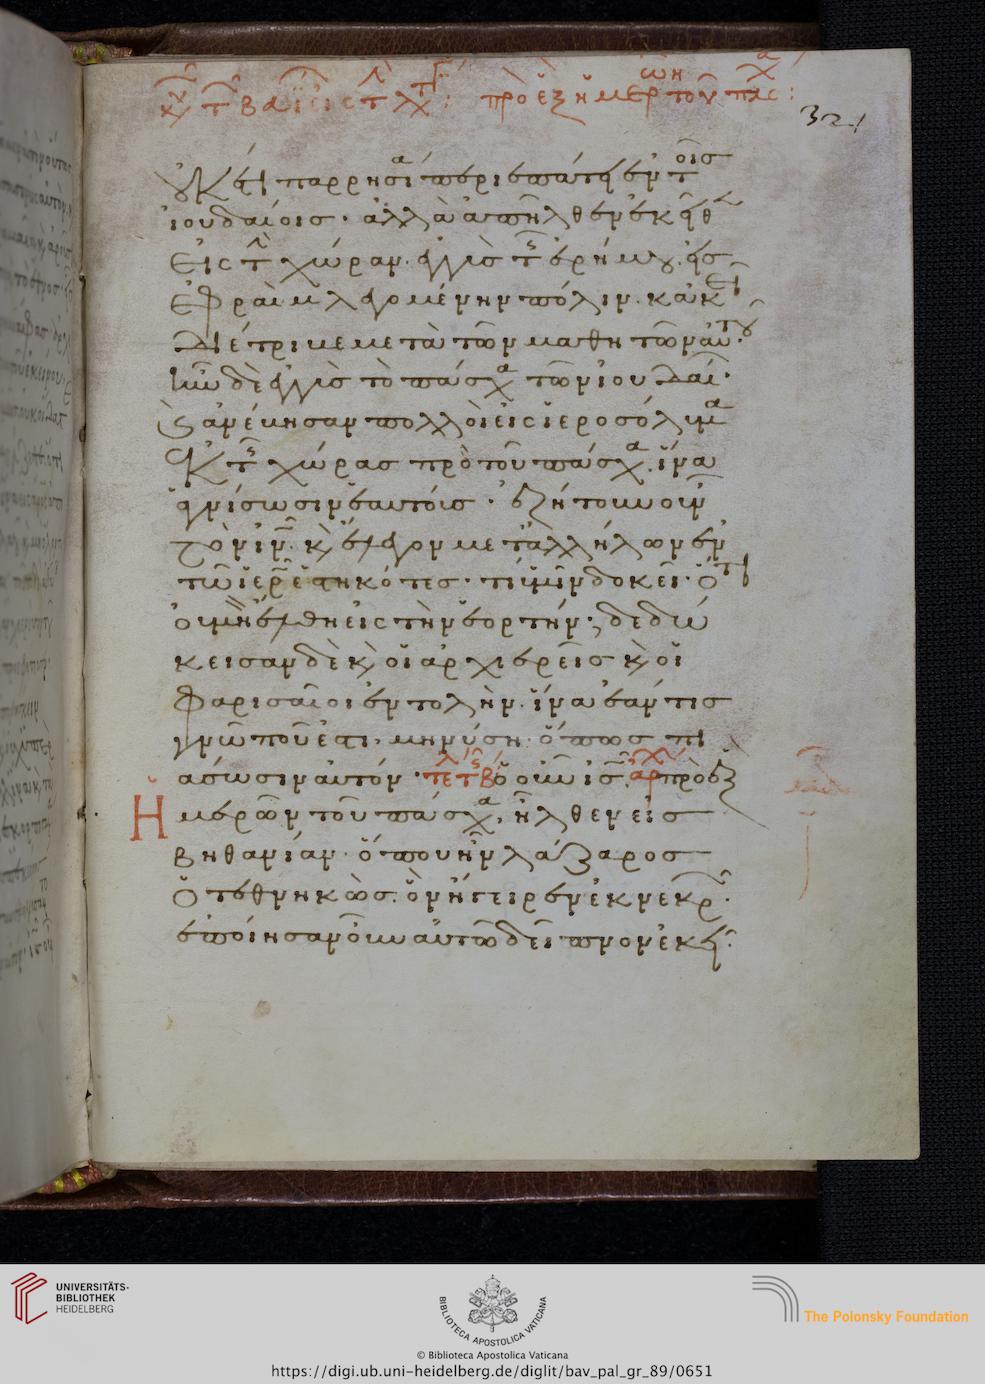 πρὸ ἓξ ἡμερ τοῦ πασχα:
321
οὐκ ἔτι παρρησία περιεπάτει ἐν τοῖς
ἰουδαίοις· ἀλλὰ ἀπῆλθεν ἐκεῖθεν
εἰς τὴν χώραν ἐγγὺς τῆς ἐρήμου. εἰς
ἐφραὶμ λεγομένην πόλιν. κακεῖ
διέτριβε μετὰ τῶν μαθητῶν αὐτοῦ·
ἦν δὲ ἐγγὺς τὸ πάσχα τῶν ἰουδαί·
καὶ ἀνέβησαν πολλοὶ εἰς ἱεροσόλυμα
ἐκ τῆς χώρας πρὸ τοῦ πάσχα. ἵνα
ἁγνίσωσιν ἑαυτούς· ἐζήτουν οὖν
τὸν ιν. καὶ ἔλεγον μετ' ἀλλήλων ἐν
τῶ ἱερῶ ἑστηκότες· τί ὑμῖν δοκεῖ. ὅτι
οὐ μὴ ἔλθη εἰς τὴν ἑορτήν; δεδώ
κεισαν δὲ καὶ οἱ ἀρχιερεῖς καὶ οἱ
φαρισαῖοι ἐντολὴν. ἵνα ἐάν τις
γνῶ ποῦ ἐστι, μηνύση. ὅπως πι
άσωσιν αὐτόν· ὁ οὖν ις. ἀρχ πρὸ ἓξ
Ἡμερῶν τοῦ πάσχα, ἦλθεν εἰς
βηθανίαν· ὅπου ἦν λάζαρος
ὁ τεθνηκὼς. ὃν ἤγειρεν ἐκ νεκρῶν·
ἐποίησαν οὖν αὐτῶ δεῖπνον ἐκεῖ·
UNIVERSITÄTS-
BIBLIOTHEK
HEIDELBERG
BIBLIOTECA APOSTOLICA VATICANA
The Polonsky Foundation
© Biblioteca Apostolica Vaticana
https://digi.ub.uni-heidelberg.de/diglit/bav_pal_gr_89/0651